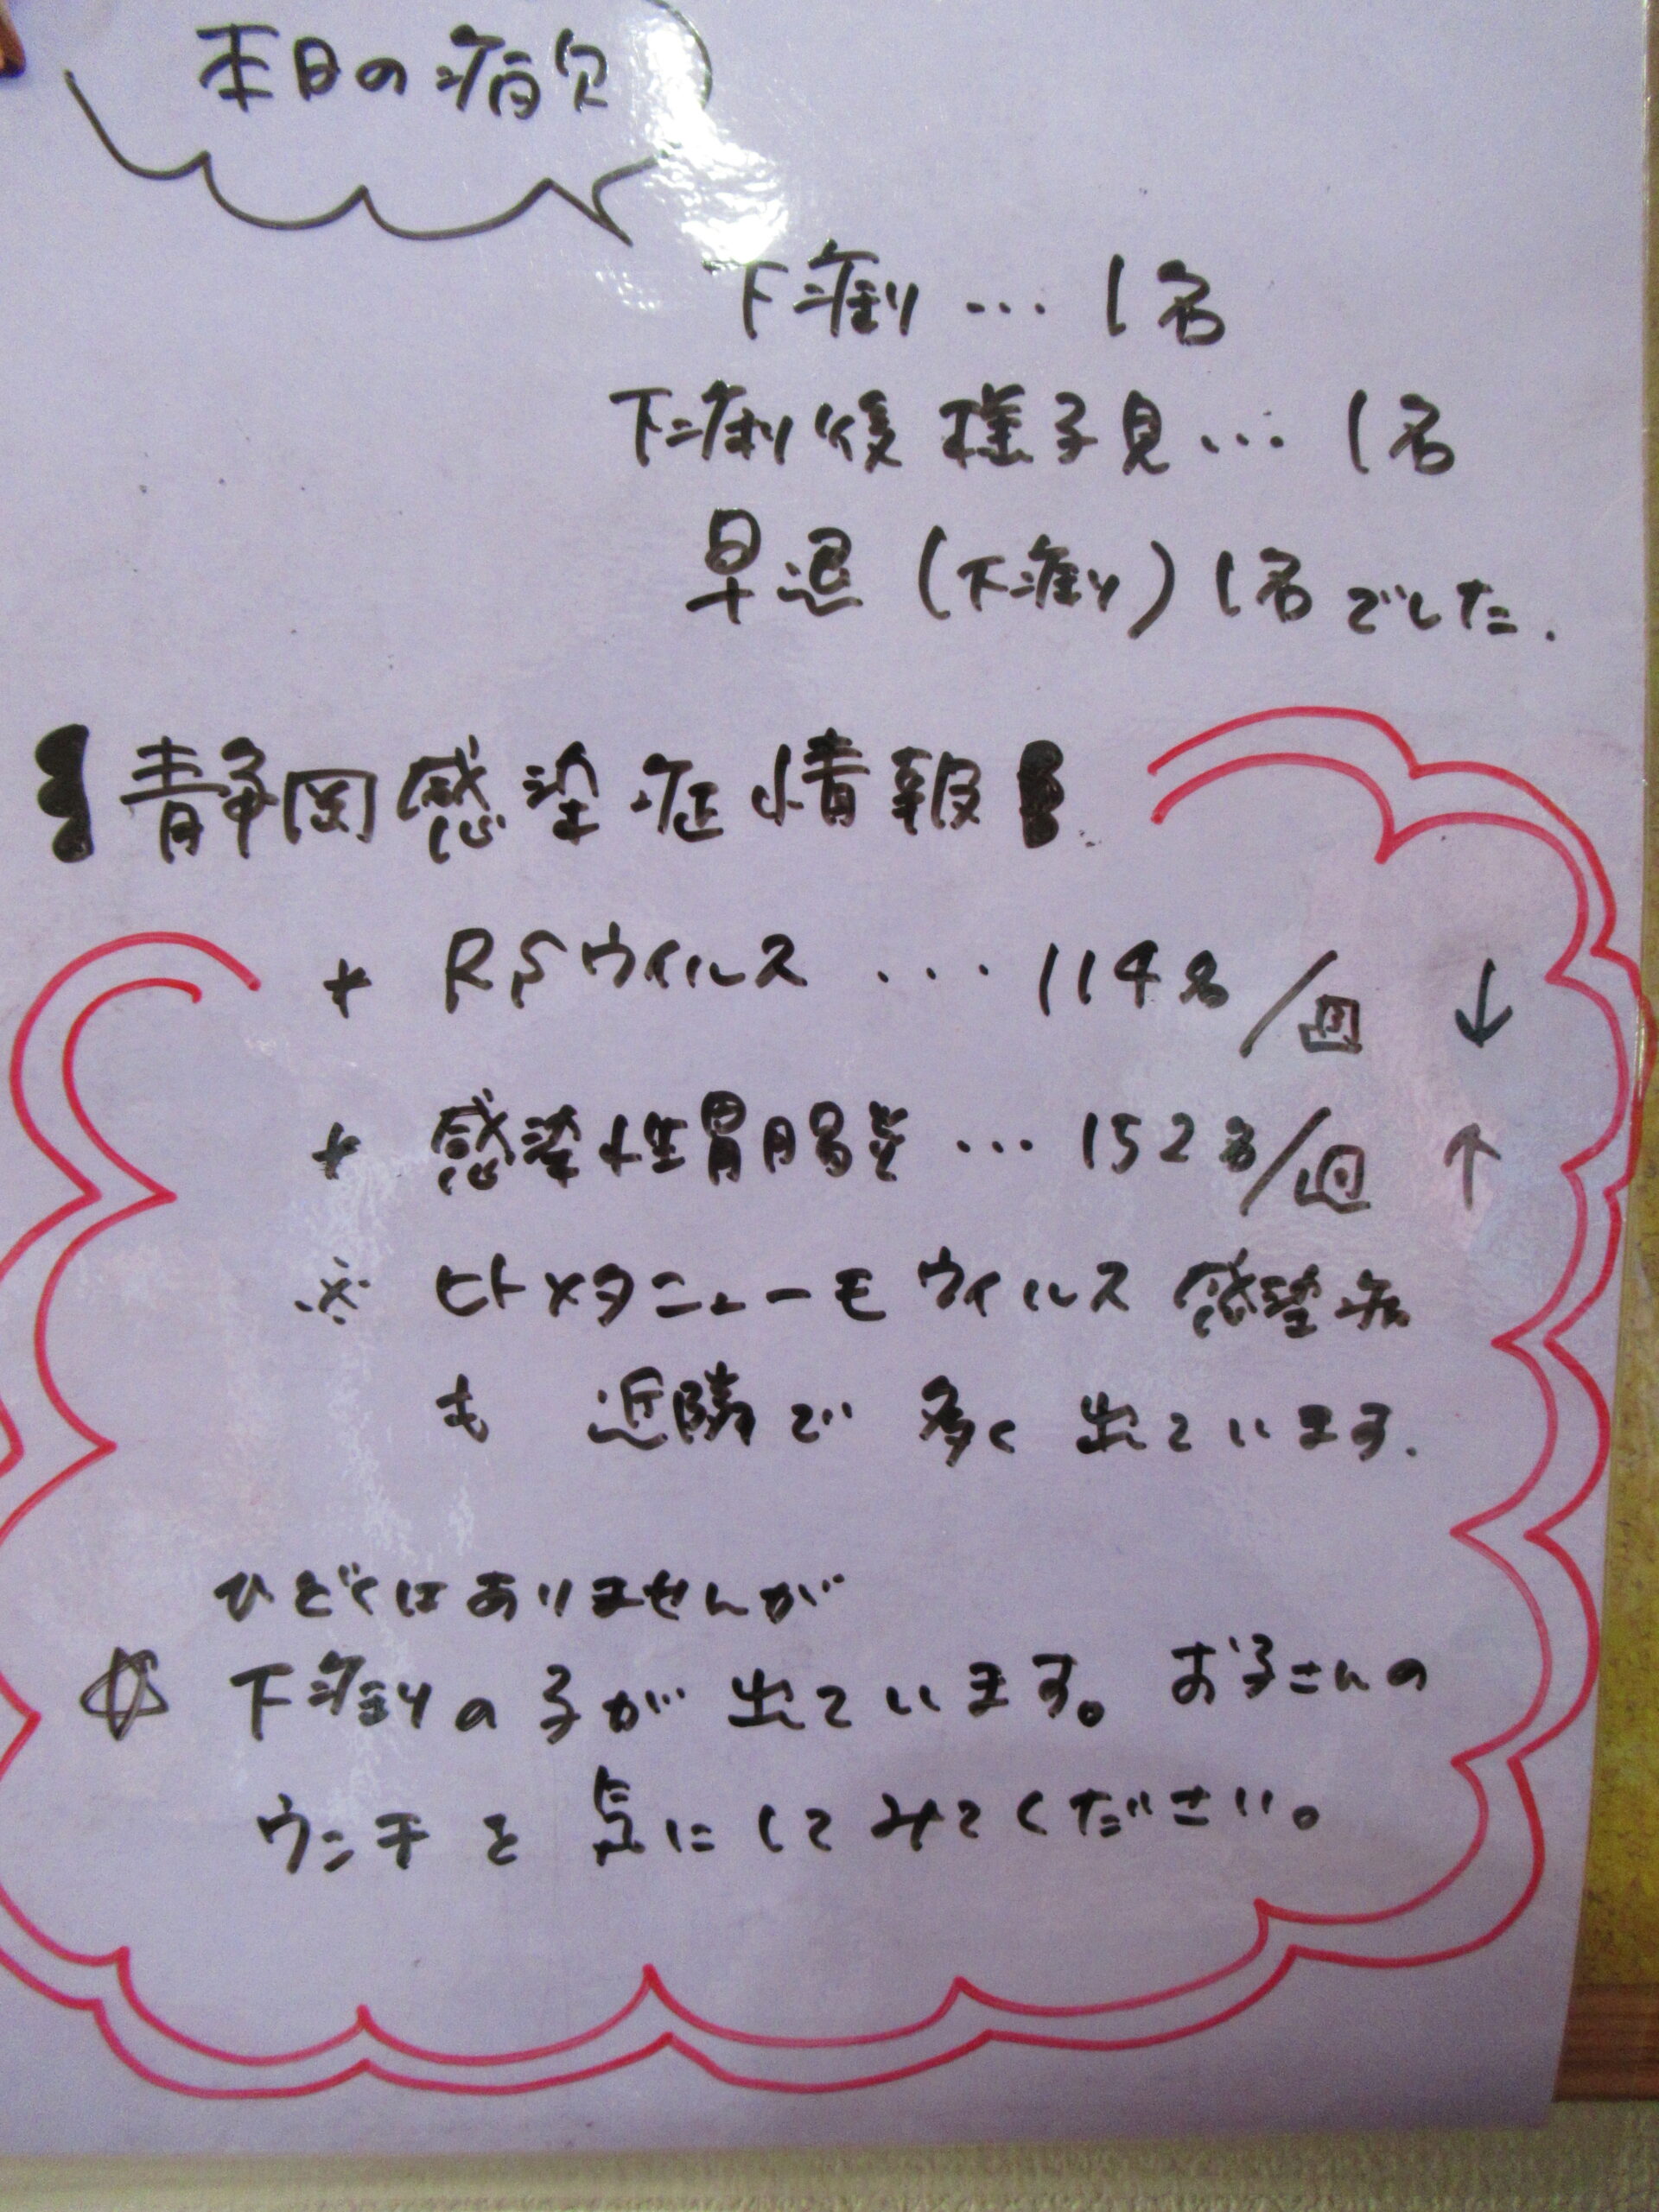 本日の病欠
下痢…1名
下痢後様子見…1名
早退(下痢)1名でした.
静岡感染症情報
RSウイルス…114名/週 ↓
感染性胃腸炎…152名/週 ↑
※ ヒトメタニューモウィルス感染症
も 近隣で 多く 出ています.
ひどくはありませんが
☆ 下痢の子が出ています。お子さんの
ウンチを気にしてみてください。